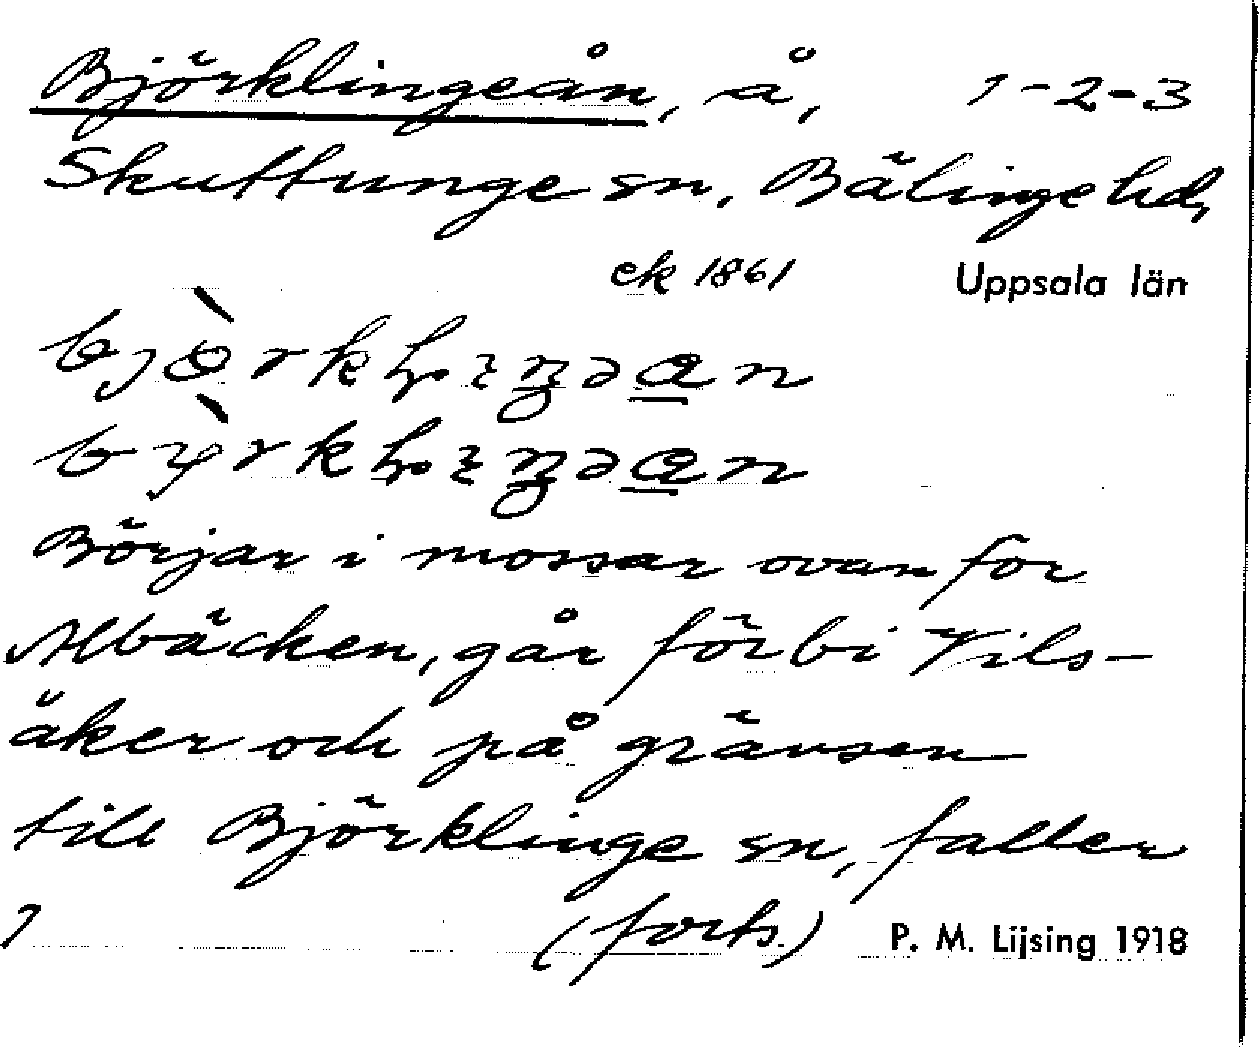 Björklingeån, å, 1-2-3
Skuttunge sn, Bälinge hd,
ek 1861 Uppsala län
Börjar i mossar ovanför
Albäcken, går förbi Vils-
åker och på gränsen
till Björklinge sn, faller
1 (forts.) P. M. Lijsing 1918